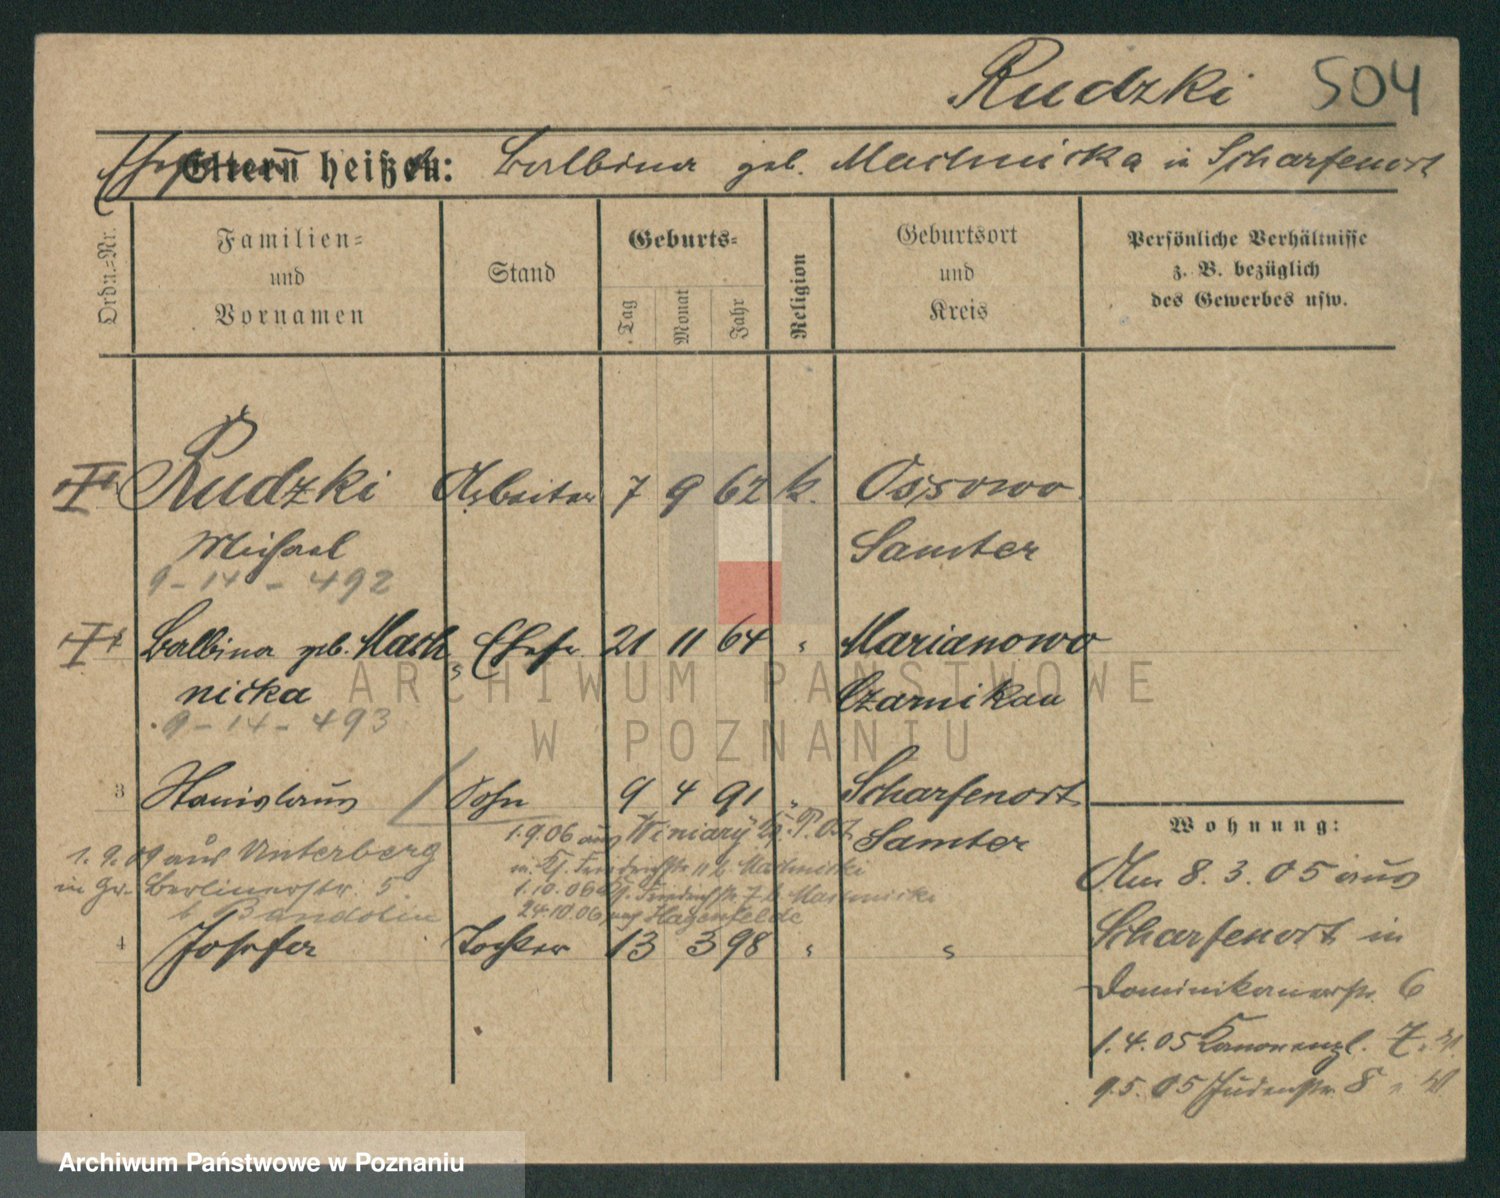 Rudzki 504
Eltern heißen: Balbina geb. Machnicka in Scharfenort
Ordn.-Nr.
Familien-
und
Vornamen
Stand
Geburts-
Tag
Monat
Jahr
Religion
Geburtsort
und
Kreis
Persönliche Verhältnisse
z. B. bezüglich
des Gewerbes usw.
Rudzki Arbeiter 7 9 62 k. Ossowo
Michael Samter
9-14-492
Balbina geb. Mach Ehefr. 21 11 64 " Marianowo
nicka Czarnikau
9-14-493
3 Stanislaus Sohn 9 4 91 " Scharfenort
Samter
1.9.06 aus Winiary P. Ost
1.9.09 aus Unterberg
in Gr. Berlinerstr. 5
b. Bandolin
1.10.06 Friedrichstr. 7 b. Machnicki
24.10.06 nach Hagenfelde
4 Josefa Tochter 13 3 98 " "
Wohnung:
Am 8.3.05 aus
Scharfenort in
Dominikanerstr. 6
1.4.05 Kanonenpl. 7
9.5.05 Judenstr. 8
ARCHIWUM PAŃSTWOWE
W POZNANIU
Archiwum Państwowe w Poznaniu